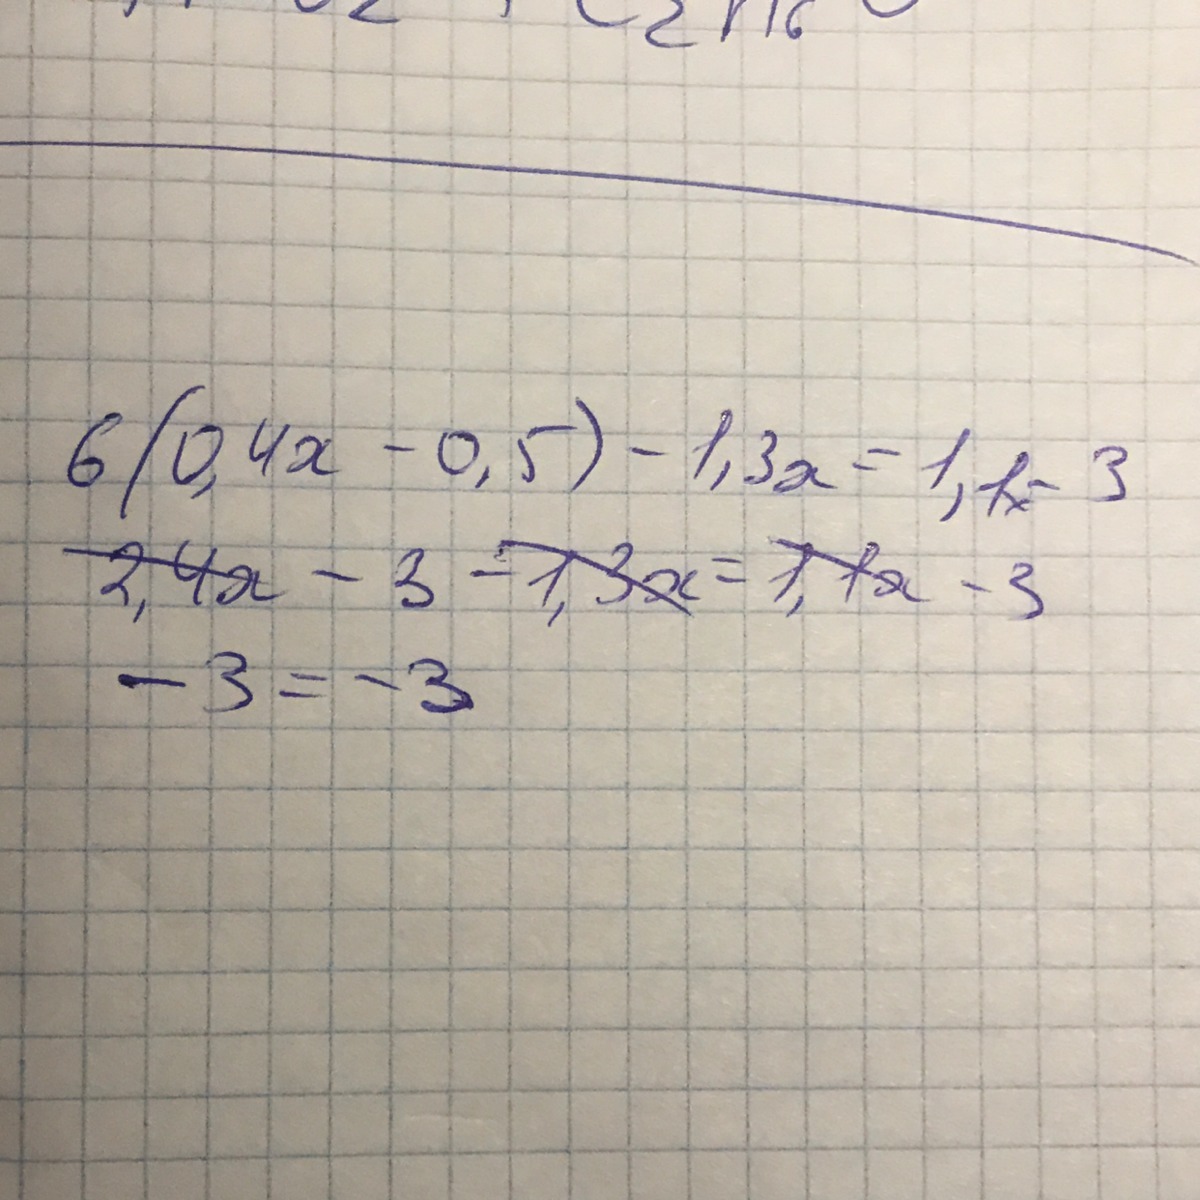 6(0,4x - 0,5) - 1,3x = 1,1x - 3
2,4x - 3 - 1,3x = 1,1x - 3
- 3 = - 3